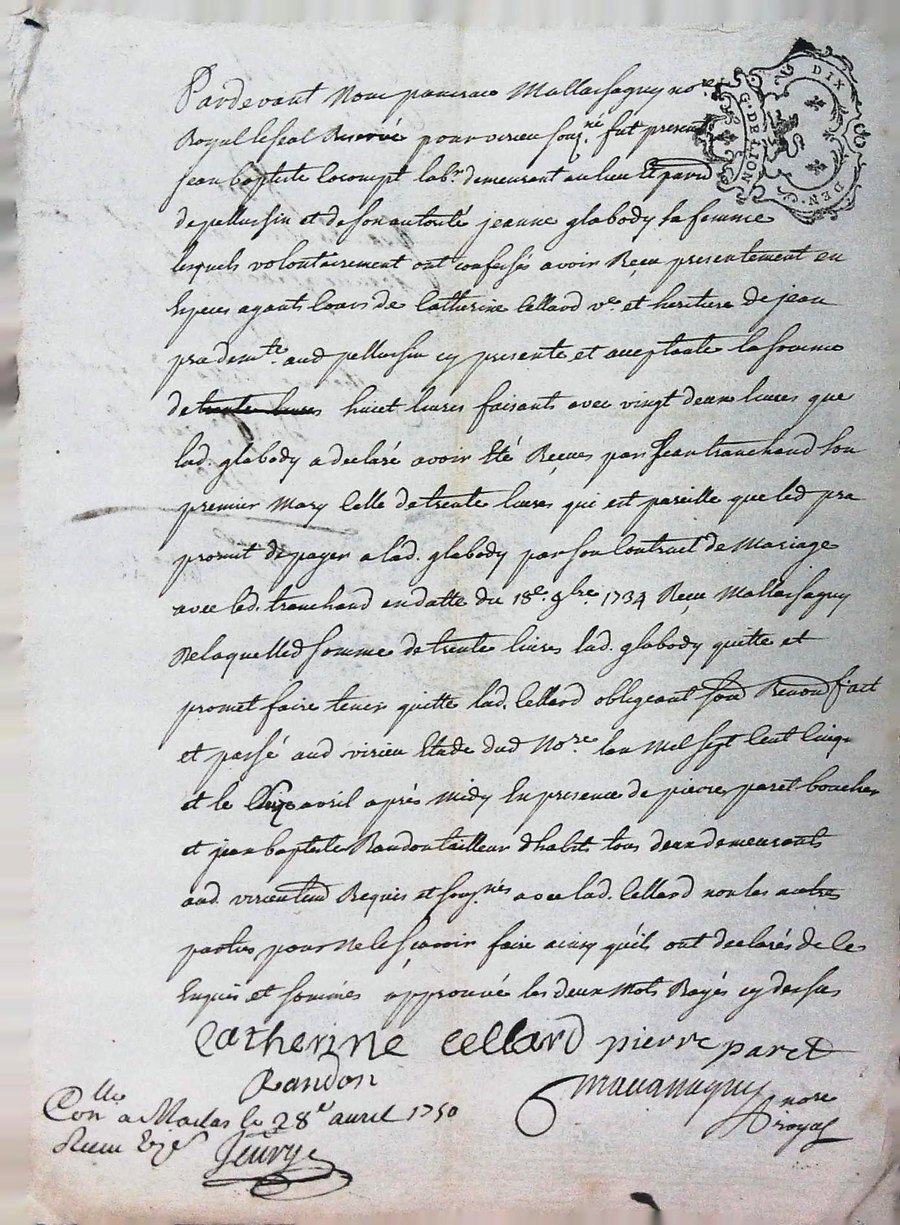 Pardevant Nous pancrace Mallassagny no.re
Royal Reservé pour virieu souz.né fut present
jean baptiste Lacompt lab.r demeurant au lieu Et paroi.
de pellussin et de son autorité jeanne glabody sa femme
lesquels volontairement ont confessés avoir Reçeu presentement en
Especes ayants cours de Catherine Cellard v.e et heritiere de jean
pra dem.te aud pellussin cy presente et acceptante la somme
de trente livres huict livres faisants avec vingt deux livres que
lad. glabody a declaré avoir Eté Reçeues par Jean tranchand son
premier Mary Celle de trente livres qui est pareille que led pra
promit de payer a lad. glabody par son Contract de Mariage
avec led. tranchand en datte du 18e. 9bre. 1734 Reçeu Mallassagny
De laquelle d somme de trente livres lad. glabody quitte et
promet faire tenir quitte lad. Cellard obligeant Renond fait
et passé aud virieu Etude dud No.re lan Mil sept Cent Cinq.te
et le avril après Midy En presence de pierre paret boucher
et jean baptiste Randon tailleur dhabits tous deux demeurants
aud. virieu Requis et souz.nés avec lad. Cellard non les autres
parties pour ne le sçavoir faire ainsy qu'ils ont declarés de Ce
Enquis et sommés approuvé les deux Mots Rayés cy dessus
Catherine cellard pierre paret
Randon Mallassagny
no.re royal
Con.llé a Maclas le 28e avril 1750
Receu
G. DE LION
DIX DEN.